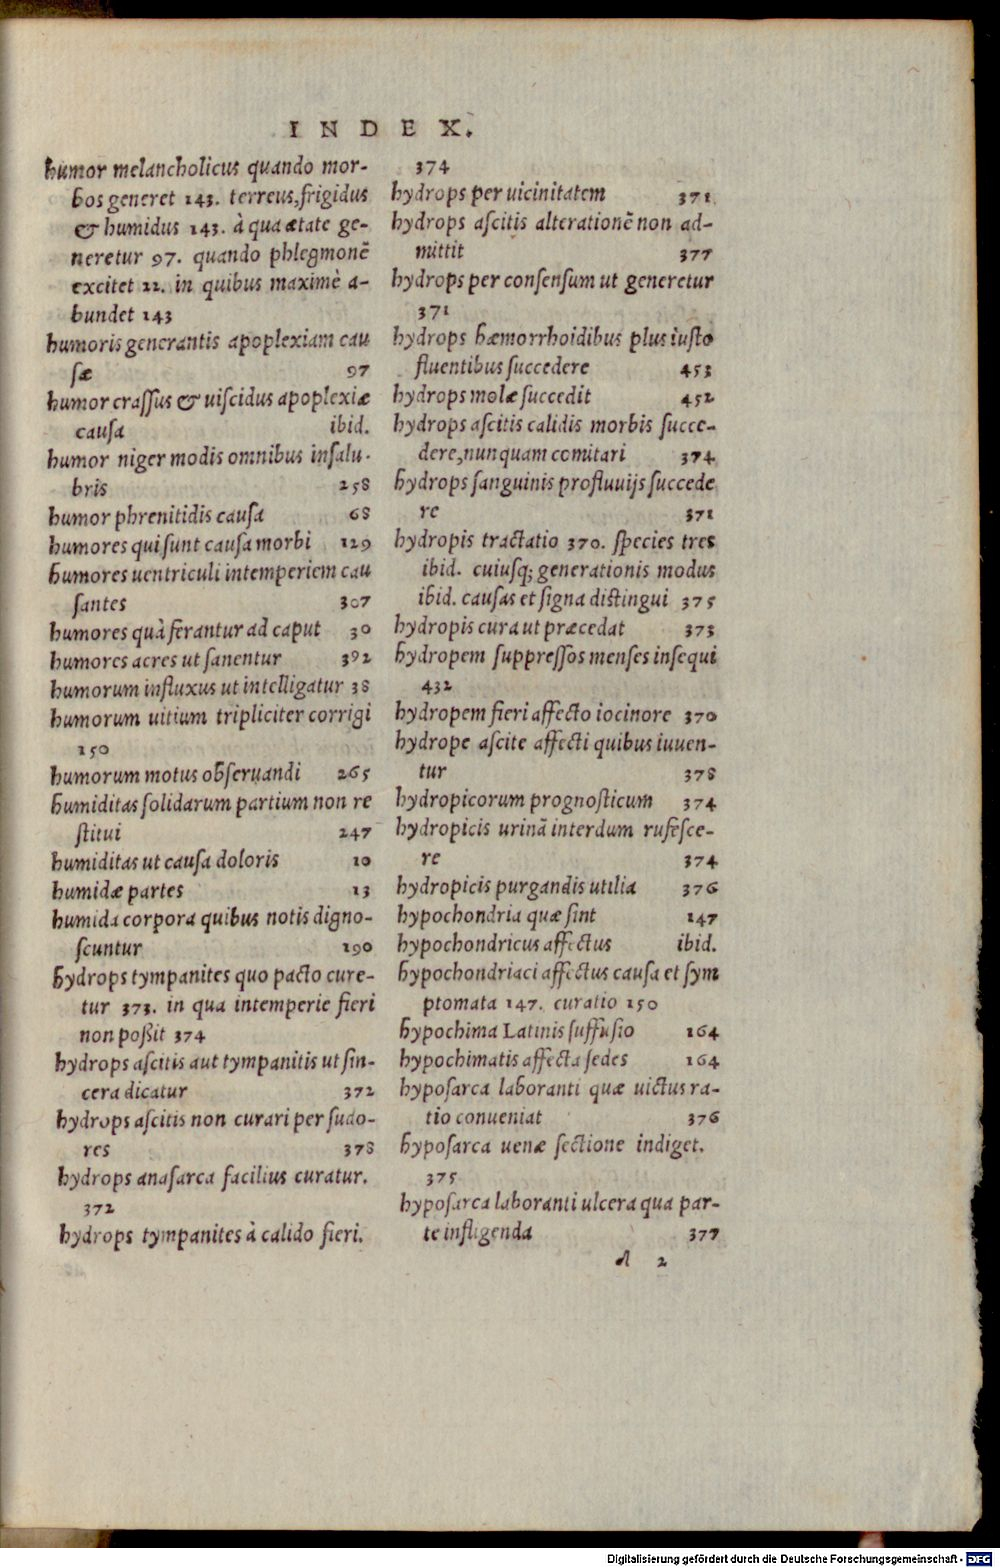 INDEX.
humor melancholicus quando mor-
bos generet 143. terreus, frigidus
& humidus 143. à qua ætate ge-
neretur 97. quando phlegmonẽ
excitet 22. in quibus maximè a-
bundet 143
humoris generantis apoplexiam cau
sæ 97
humor crassus & uiscidus apoplexiæ
causa ibid.
humor niger modis omnibus insalu-
bris 258
humor phrenitidis causa 68
humores qui sunt causa morbi 129
humores uentriculi intemperiem cau
santes 307
humores quà ferantur ad caput 30
humores acres ut sanentur 392
humorum influxus ut intelligatur 38
humorum uitium tripliciter corrigi
150
humorum motus obseruandi 265
humiditas solidarum partium non re
stitui 247
humiditas ut causa doloris 10
humidæ partes 13
humida corpora quibus notis digno-
scuntur 190
hydrops tympanites quo pacto cure-
tur 373. in qua intemperie fieri
non poßit 374
hydrops ascitis aut tympanitis ut sin-
cera dicatur 372
hydrops ascitis non curari per sudo-
res 378
hydrops anasarca facilius curatur.
372
hydrops tympanites à calido fieri.
374
hydrops per uicinitatem 371
hydrops ascitis alterationẽ non ad-
mittit 377
hydrops per consensum ut generetur
371
hydrops hæmorrhoidibus plus iusto
fluentibus succedere 453
hydrops molæ succedit 452
hydrops ascitis calidis morbis succe-
dere, nunquam comitari 374
hydrops sanguinis profluuijs succede
re 371
hydropis tractatio 370. species tres
ibid. cuiusq; generationis modus
ibid. causas et signa distingui 375
hydropis cura ut præcedat 373
hydropem suppressos menses insequi
432
hydropem fieri affecto iocinore 370
hydrope ascite affecti quibus iuuen-
tur 378
hydropicorum prognosticum 374
hydropicis urinã interdum rufesce-
re 374
hydropicis purgandis utilia 376
hypochondria quæ sint 147
hypochondricus affectus ibid.
hypochondriaci affectus causa et sym
ptomata 147. curatio 150
hypochima Latinis suffusio 164
hypochimatis affecta sedes 164
hyposarca laboranti quæ uictus ra-
tio conueniat 376
hyposarca uenæ sectione indiget.
375
hyposarca laboranti ulcera qua par-
te infligenda 377
d 2
Digitalisierung gefördert durch die Deutsche Forschungsgemeinschaft - DFG